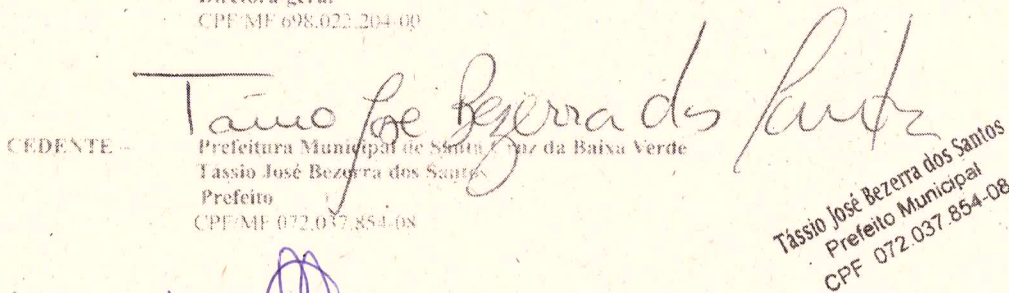 Diretora-geral
CPF/MF 698.022.204-00
Tássio José Bezerra dos Santos
CEDENTE – Prefeitura Municipal de Santa Cruz da Baixa Verde
Tássio José Bezerra dos Santos
Prefeito
CPF/MF 072.037.854-08
Tássio José Bezerra dos Santos
Prefeito Municipal
CPF 072.037.854-08